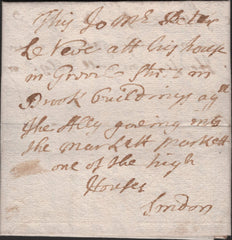 This To Mr Peter
Le Neve att his house
in Grevile Street in
Brook buildings agst
the Ally goeing into
the markett
one of the high
Houses
London